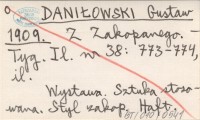 DANIŁOWSKI Gustaw
1909. Z Zakopanego. -
Tyg. Il. nr 38: 773-774,
il.
Wystawa. Sztuka stoso-
wana. Styl zakop. Haft.